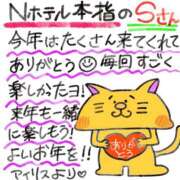 Nホテル本指のSさん
今年はたくさん来てくれて
ありがとう♡毎回すごく
楽しかたヨ!
来年も一緒
に楽しもう!
よいお年を!!
アイリスより♡
ありがとう